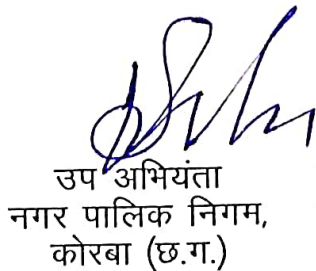 उप अभियंता
नगर पालिक निगम,
कोरबा (छ.ग.)